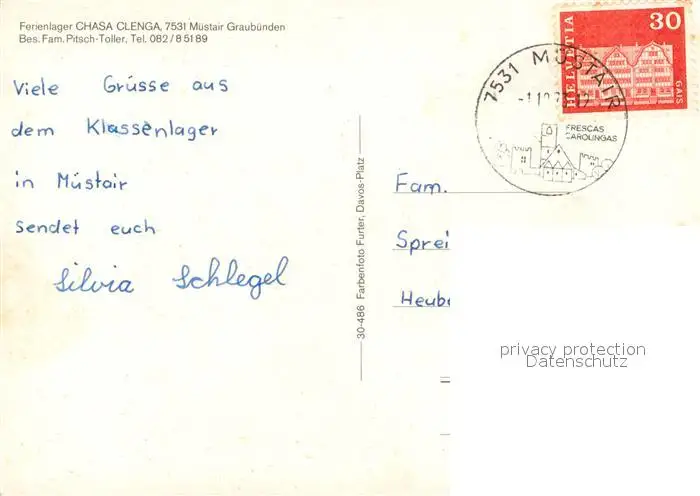 Ferienlager CHASA CLENGA, 7531 Müstair Graubünden
Bes. Fam. Pitsch-Toller, Tel. 082 / 8 51 89
Viele Grüsse aus
dem Klassenlager
in Müstair
sendet euch
Silvia Schlegel
30-486 Farbenfoto Furter, Davos-Platz
HELVETIA
30
GAIS
7531 MÜSTAIR
FRESCAS
CAROLINGAS
Fam.
Sprei
Heube
privacy protection
Datenschutz